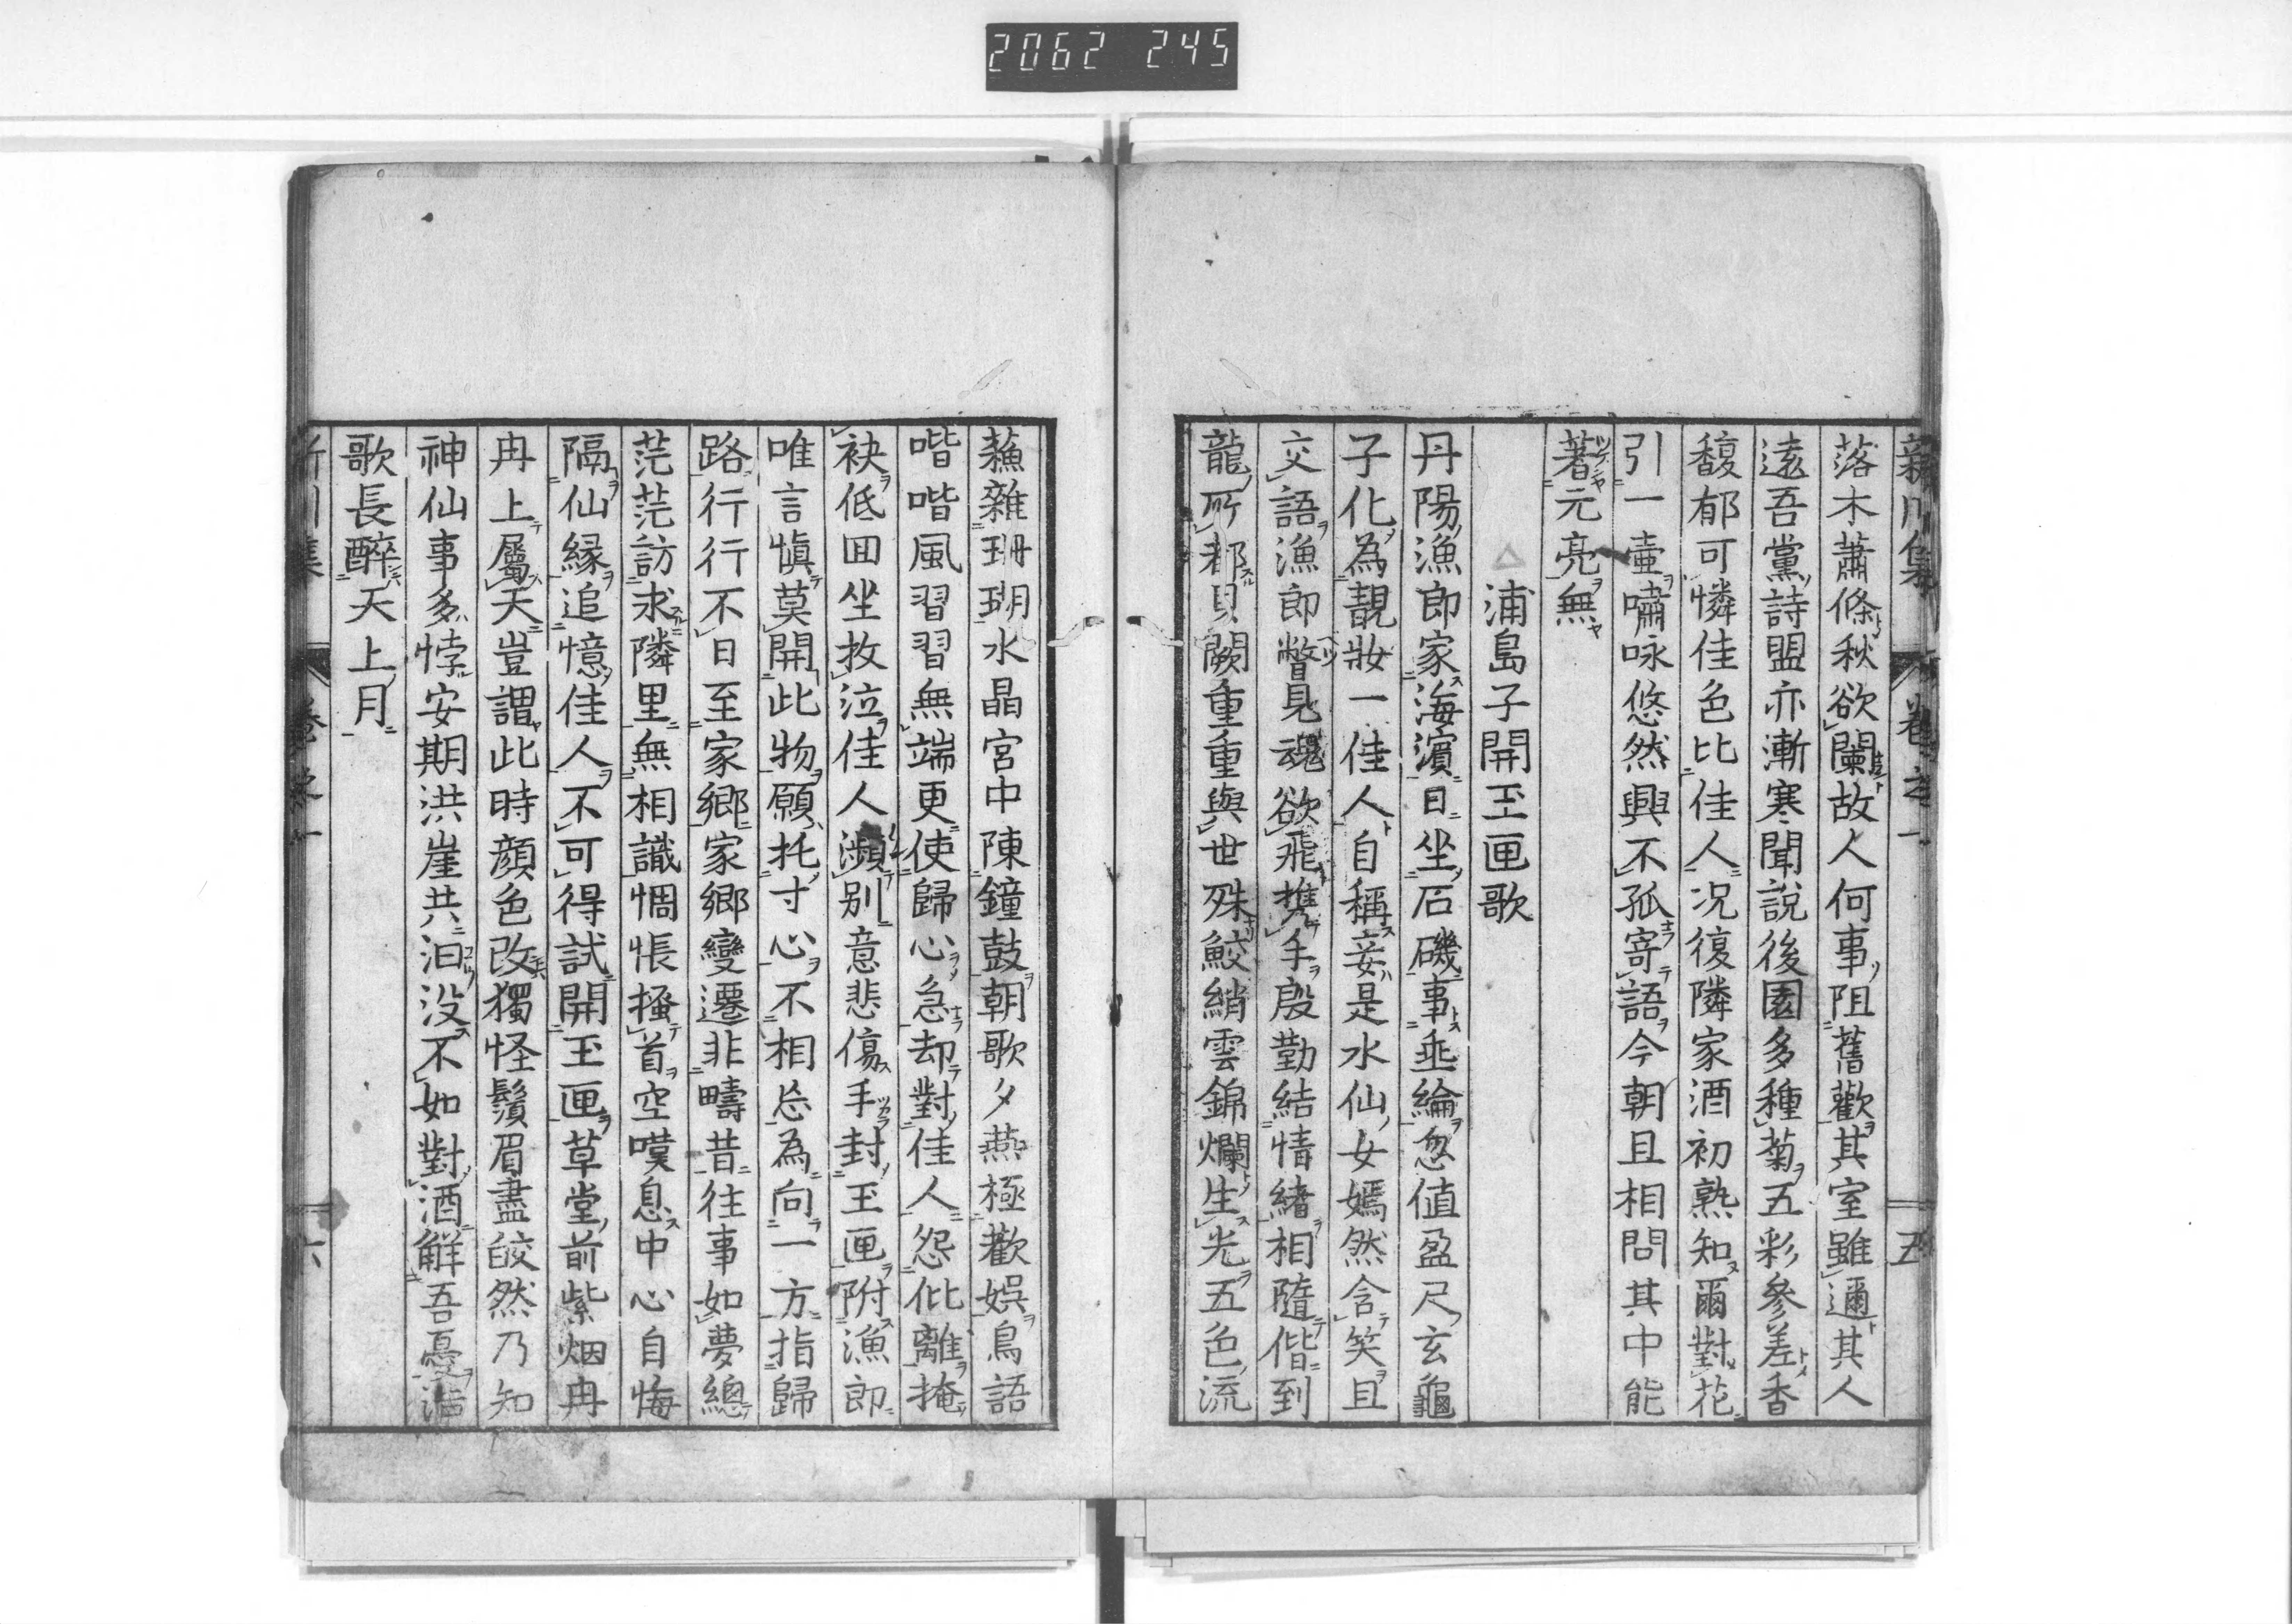 2062 245
落木蕭條秋欲闌故人何事阻舊歡其室雖邇其人
遠吾黨詩盟亦漸寒聞說後園多種菊五彩參差香
馥郁可憐佳色比佳人况復隣家酒初熟知爾對花
引一壷嘯咏悠然興不孤寄語今朝且相問其中能
著元亮無
浦島子開玉匣歌
丹陽漁郎家海濵日坐石磯事垂綸忽值盈尺玄龜
子化為靚妝一佳人自稱妾是水仙女嫣然含笑且
交語漁郎瞥見魂欲飛携手殷勤結情緒相隨偕到
龍所都貝闕重重與世殊鮫綃雲錦爛生光五色流
蘓雜珊瑚水晶宮中陳鐘鼓朝歌夕燕極歡娯鳥語
喈喈風習習無端更使歸心急却對佳人怨仳離掩
袂低回坐抆泣佳人瀕別意悲傷手封玉匣附漁郎
唯言慎莫開此物願托寸心不相忘為向一方指歸
路行行不日至家鄉家鄉變遷非疇昔往事如夢總
茫茫訪求隣里無相識惆悵搔首空嘆息中心自悔
隔仙緣追憶佳人不可得試開玉匣草堂前紫烟冉
冉上屬天豈謂此時顔色改獨怪鬚眉盡皎然乃知
神仙事多悖安期洪崖共汩没不如對酒解吾憂浩
歌長醉天上月
卷之一
五
六